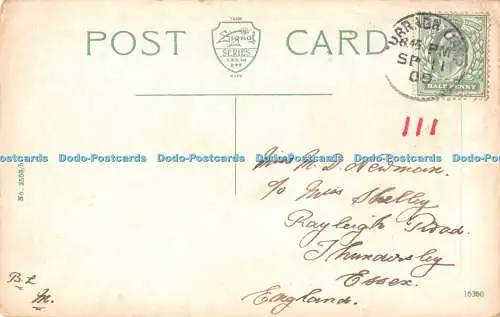 POST CARD
TRADE
Signal
SERIES
MARK
8.15 PM
SP 11
09
HALF PENNY
111
Dodo-Postcards Dodo-Postcards Dodo-Postcards Dodo-Postcards Dodo-Postcards
Miss M. D. Newman.
c/o Miss Shelly
Rayleigh Road.
Thundersley
Essex.
England.
B. L.
M.
16360